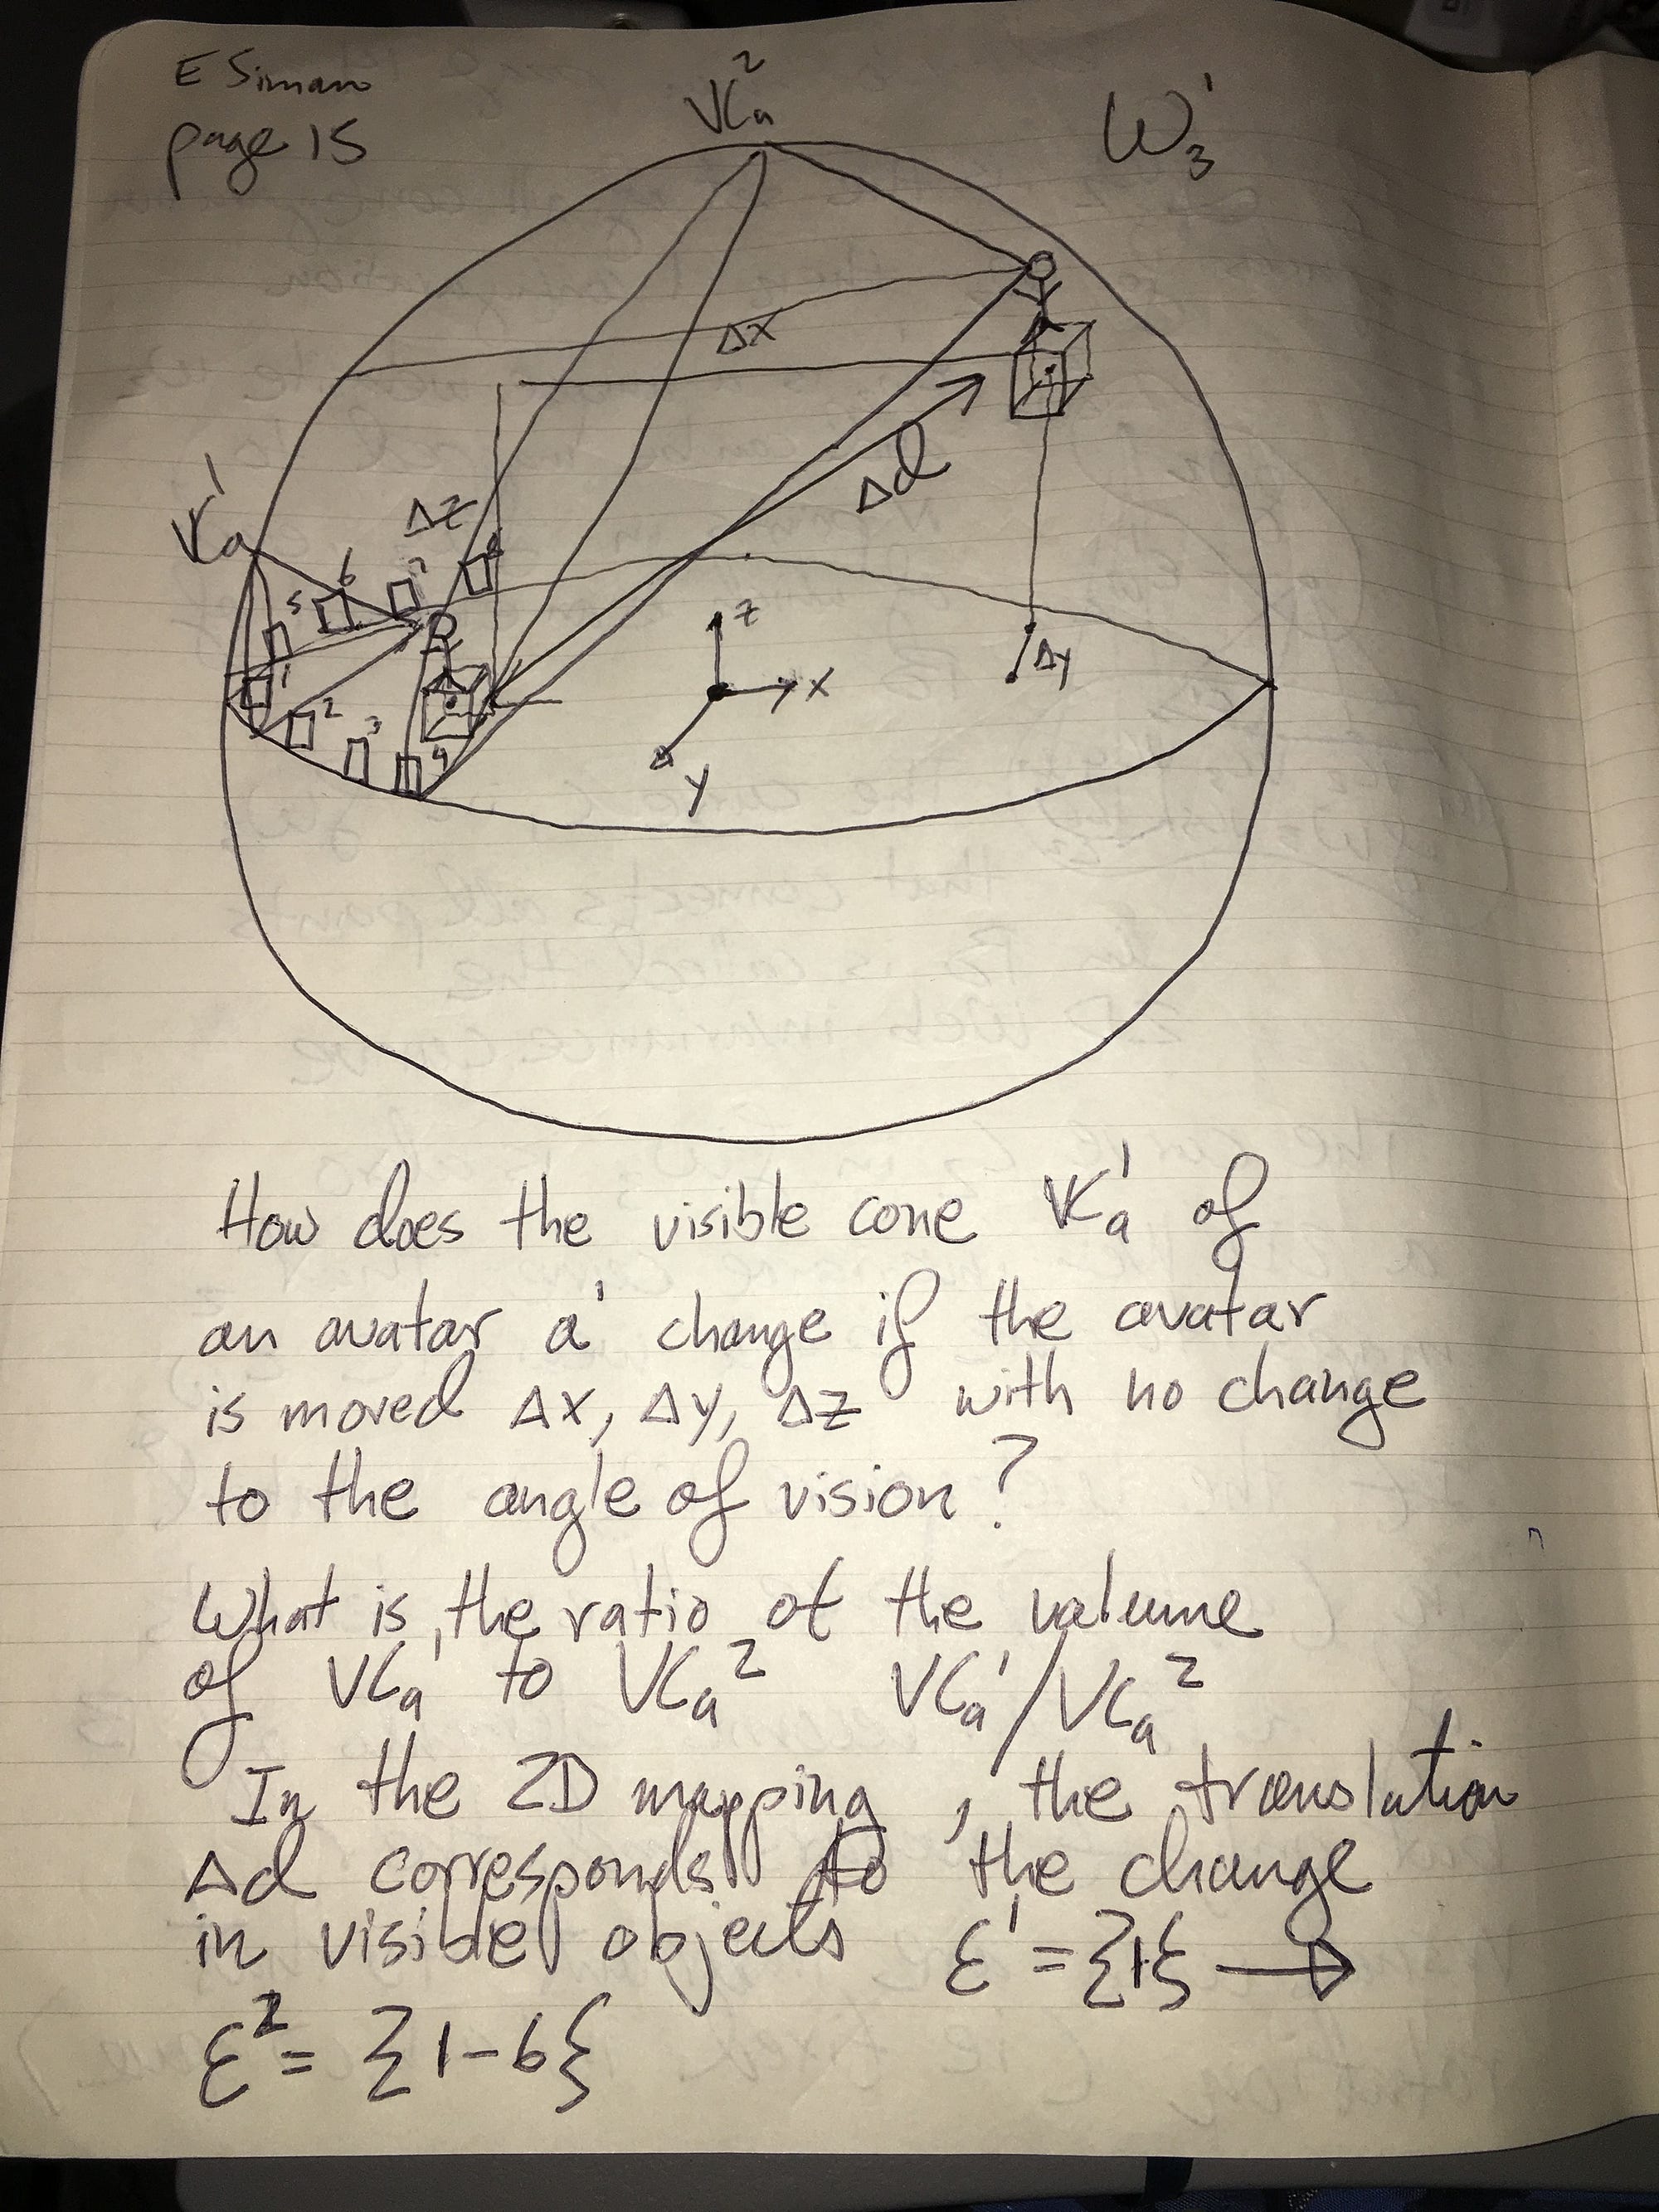 E Siman
page 15
VCa²
W₃¹
Δx
Δd
VCa¹
Δz
6
7
5
1
2
3
4
z
x
y
Δy
How does the visible cone VCa¹ of
an avatar a¹ change if the avatar
is moved Δx, Δy, Δz with no change
to the angle of vision?
What is the ratio of the volume
of VCa¹ to VCa² VCa¹/VCa²
In the 2D mapping, the translation
Δd corresponds to the change
in visible objects ε¹ = {1} →
ε² = {1-6}